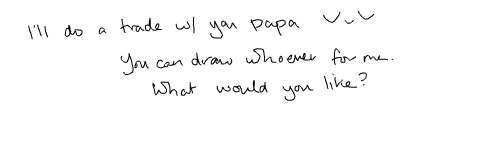 I'll do a trade w/ you papa ◡ᴗ◡
You can draw whoever for me.
What would you like?